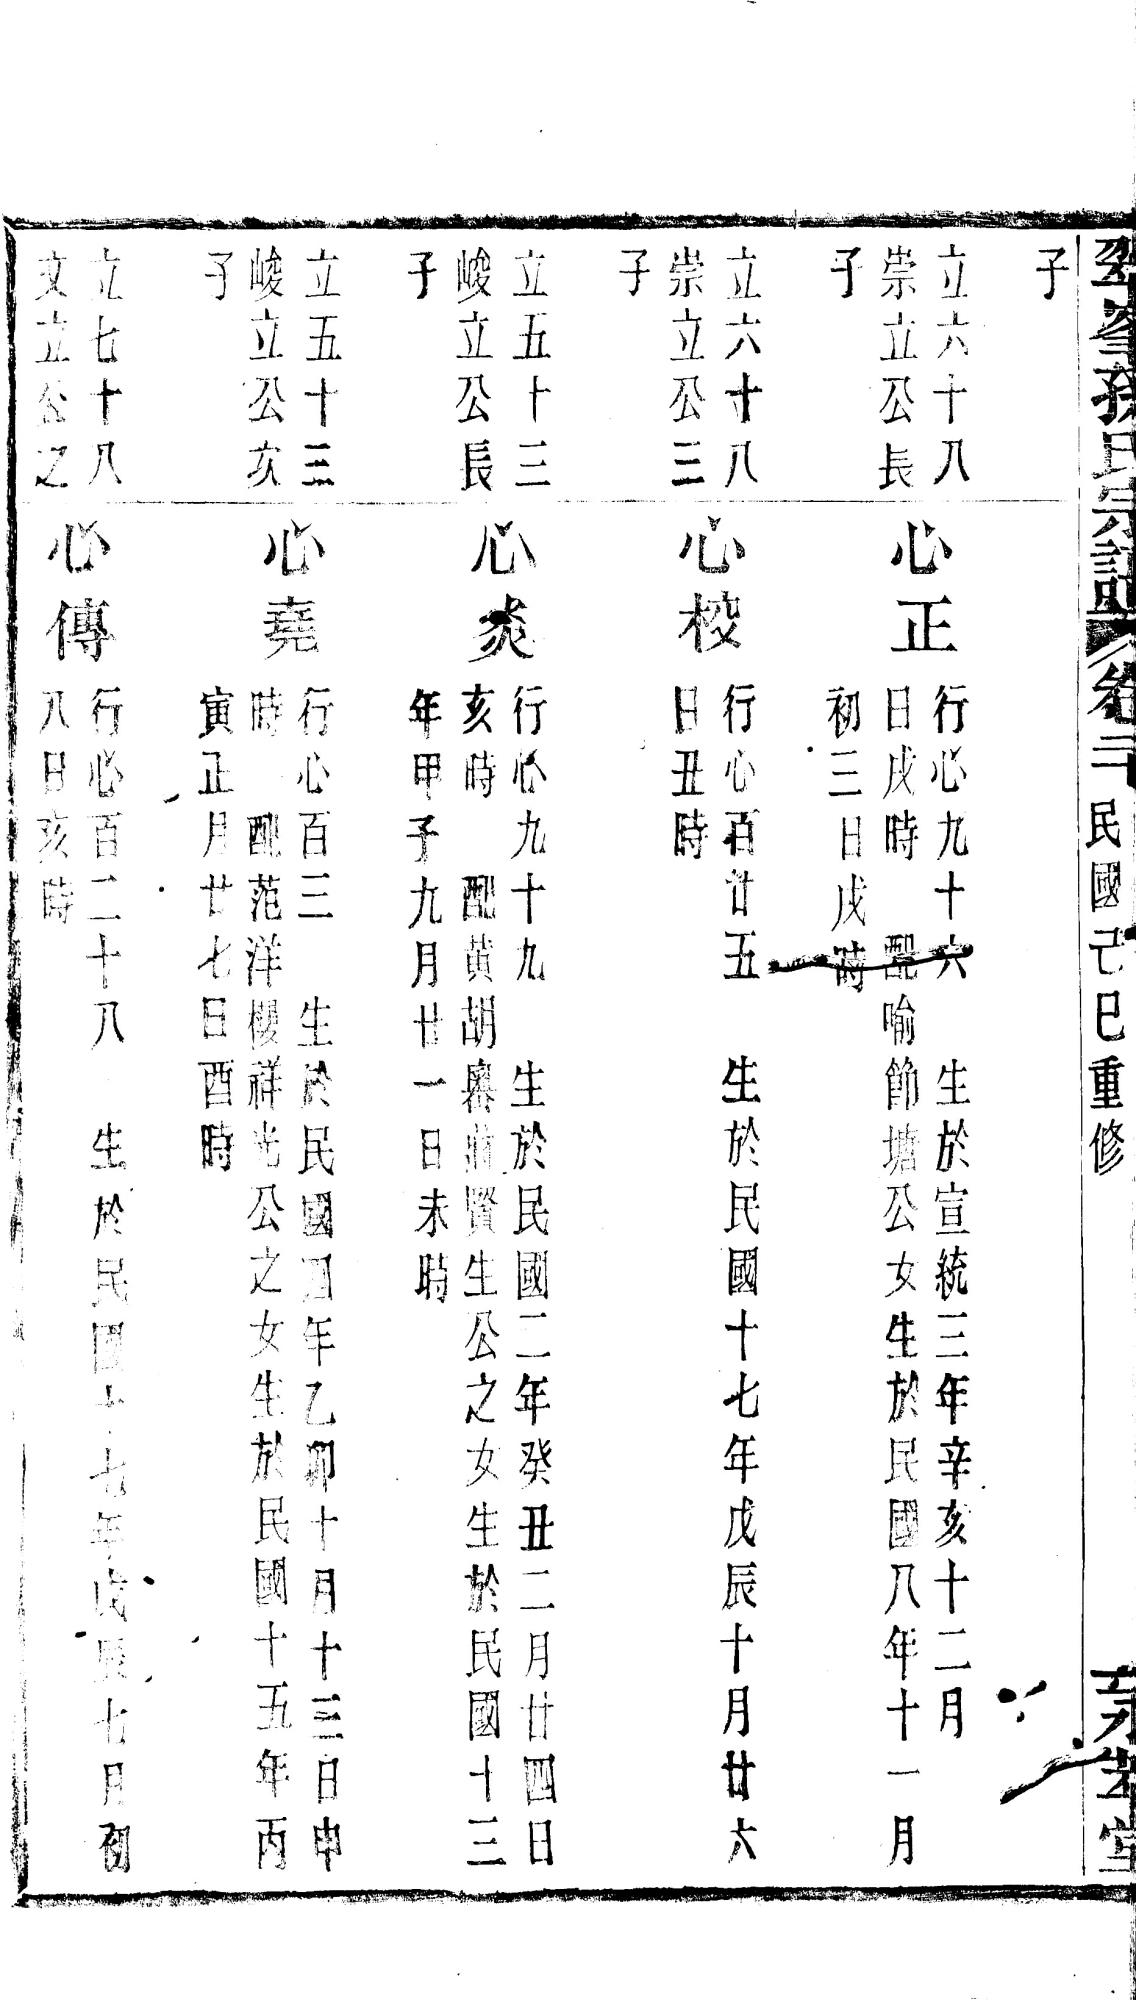 孫氏宗譜
卷二
民國己巳重修
堂
子
立六十八
崇立公長
子
心正
行心九十六 生於宣統三年辛亥十二月
日戌時 配喻節塘公女生於民國八年十一月
初三日戌時
立六十八
崇立公三
子
心校
行心百廿五 生於民國十七年戊辰十月廿六
日丑時
立五十三
峻立公長
子
心
行心九十九 生於民國二年癸丑二月廿四日
亥時 配黃胡賢生公之女生於民國十三
年甲子九月廿一日未時
立五十三
峻立公次
子
心堯
行心百三 生於民國四年乙卯十月十三日申
時 配范洋櫻祥光公之女生於民國十五年丙
寅正月廿七日酉時
立七十八
文立公之
心傳
行心百二十八 生於民國十七年戊辰七月初
八日亥時